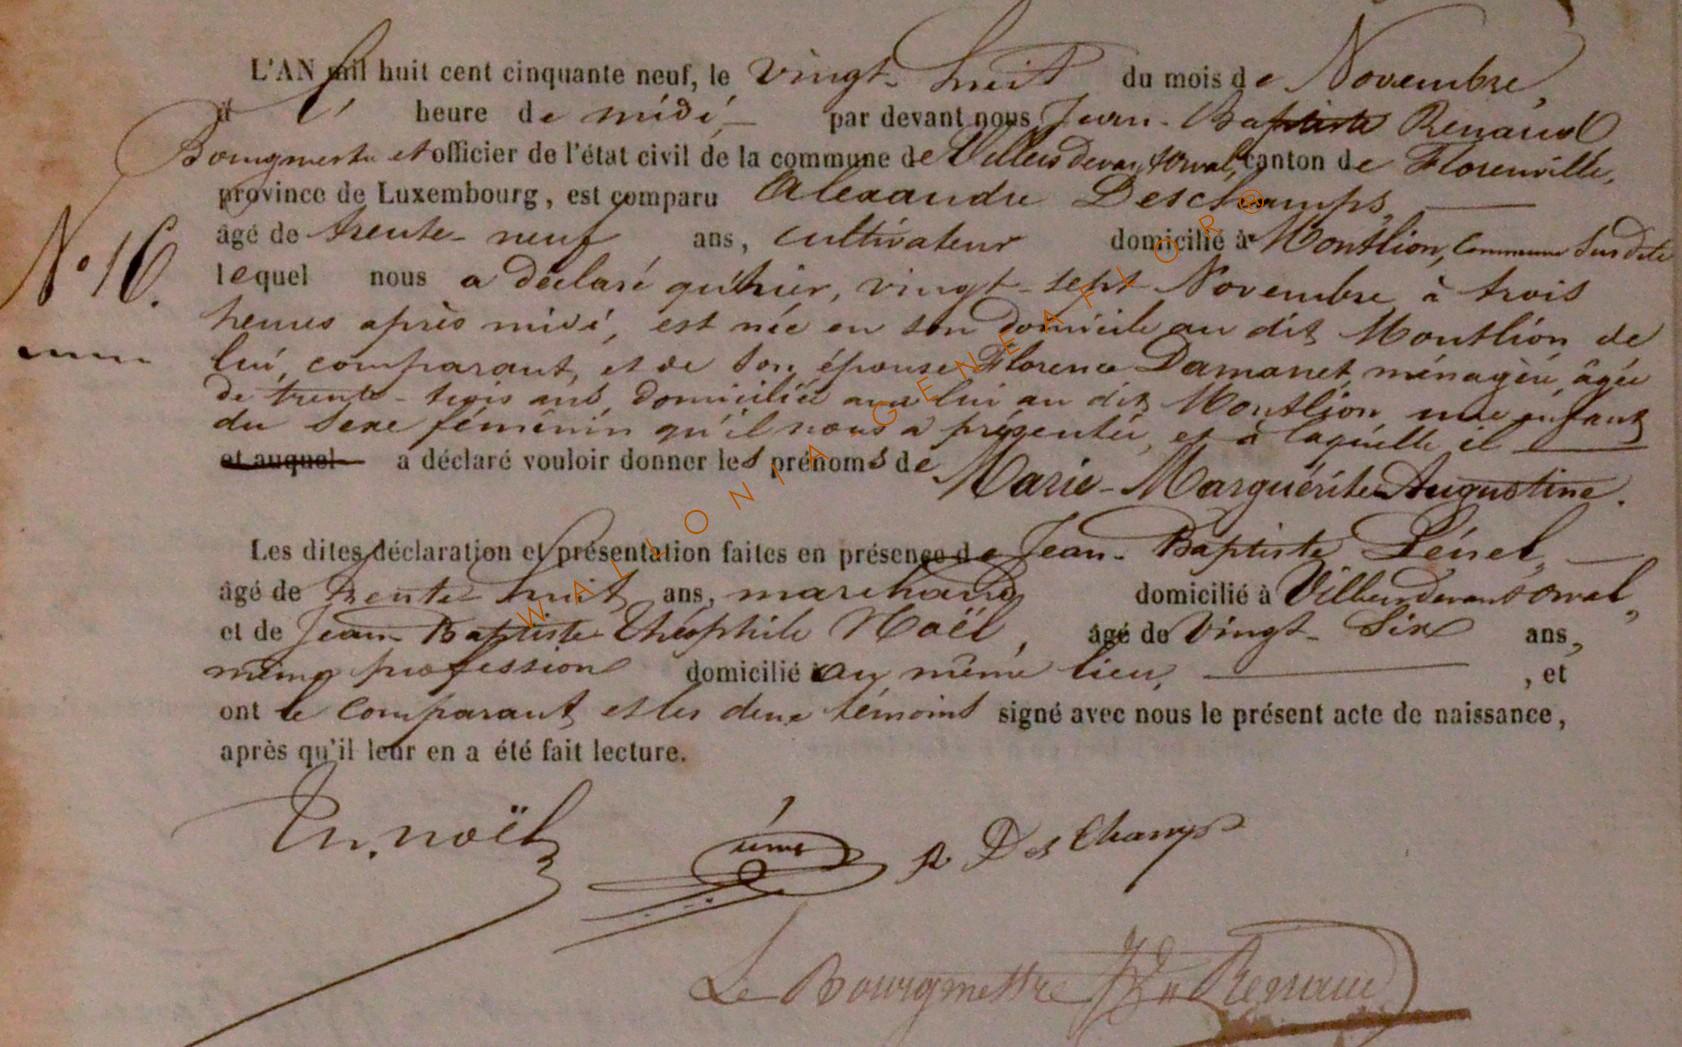 L'AN mil huit cent cinquante neuf, le vingt-huit du mois de Novembre,
à l' heure de midi, par devant nous Jean-Baptiste Renaud
Bourgmestre et officier de l'état civil de la commune de Villers devant Orval, canton de Florenville,
province de Luxembourg, est comparu Alexandre Deschamps,
âgé de trente-neuf ans, cultivateur domicilié à Montlion, commune susdite
N° 16.
lequel nous a déclaré qu'hier, vingt-sept Novembre à trois
heures après midi, est née en son domicile au dit Montlion de
lui, comparant, et de son épouse Florence Damanet, ménagère, âgée
de trente-trois ans domiciliée avec lui au dit Montlion une enfant
du sexe féminin qu'il nous a présentée, et à laquelle il
et auquel a déclaré vouloir donner les prénoms de Marie-Marguérite Augustine.
Les dites déclaration et présentation faites en présence de Jean-Baptiste
âgé de trente huit ans, marchand domicilié à Villers devant Orval,
et de Jean-Baptiste Théophile Noël, âgé de vingt-six ans,
même profession domicilié au même lieu, , et
ont le comparant et les deux témoins signé avec nous le présent acte de naissance,
après qu'il leur en a été fait lecture.
Th. Noël
A DesChamps
Le Bourgmestre JB Renaud
WALLONIA GENEAFLOR ®